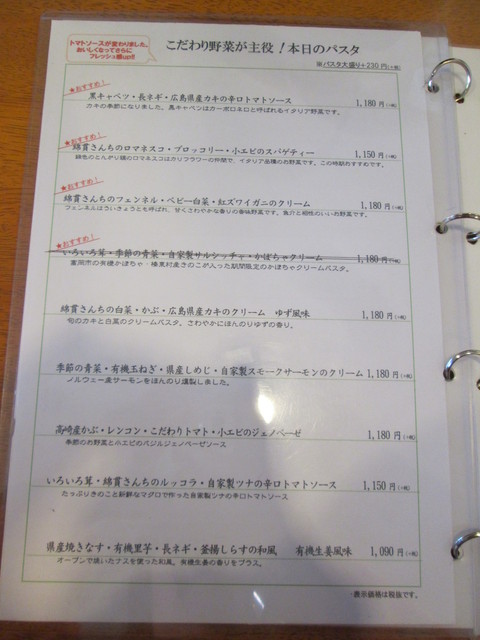 トマトソースが変わりました。
おいしくなってさらに
フレッシュ感up!!
こだわり野菜が主役！本日のパスタ
※パスタ大盛り＋230円(+税)
★おすすめ！
黒キャベツ・長ネギ・広島県産カキの辛口トマトソース 1,180円(+税)
カキの季節になりました。黒キャベツはカーボロネロと呼ばれるイタリア野菜です。
★おすすめ！
綿貫さんちのロマネスコ・ブロッコリー・小エビのスパゲティー 1,150円(+税)
緑色のとんがり頭のロマネスコはカリフラワーの仲間で、イタリア品種のお野菜です。この時期おすすめです。
★おすすめ！
綿貫さんちのフェンネル・ベビー白菜・紅ズワイガニのクリーム 1,180円(+税)
フェンネルはういきょうとも呼ばれ、甘くさわやかな香りの香味野菜です。魚介と相性のいいお野菜です。
★おすすめ！
いろいろ茸・季節の青菜・自家製サルシッチャ・かぼちゃクリーム 1,180円(+税)
富岡市の有機かぼちゃ・榛東村産きのこが入った期間限定のかぼちゃクリームパスタ。
綿貫さんちの白菜・かぶ・広島県産カキのクリーム ゆず風味 1,180円(+税)
旬のカキと白菜のクリームパスタ。さわやかにほんのりゆずの香り。
季節の青菜・有機玉ねぎ・県産しめじ・自家製スモークサーモンのクリーム 1,180円(+税)
ノルウェー産サーモンをほんのり燻製しました。
高崎産かぶ・レンコン・こだわりトマト・小エビのジェノベーゼ 1,180円(+税)
季節のお野菜と小エビのバジルジェノベーゼソース
いろいろ茸・綿貫さんちのルッコラ・自家製ツナの辛口トマトソース 1,150円(+税)
たっぷりきのこと新鮮なマグロで作った自家製ツナの辛口トマトソース
県産焼きなす・有機里芋・長ネギ・釜揚しらすの和風 有機生姜風味 1,090円(+税)
オーブンで焼いたナスを使った和風。有機生姜の香りをプラス。
・表示価格は税抜です。